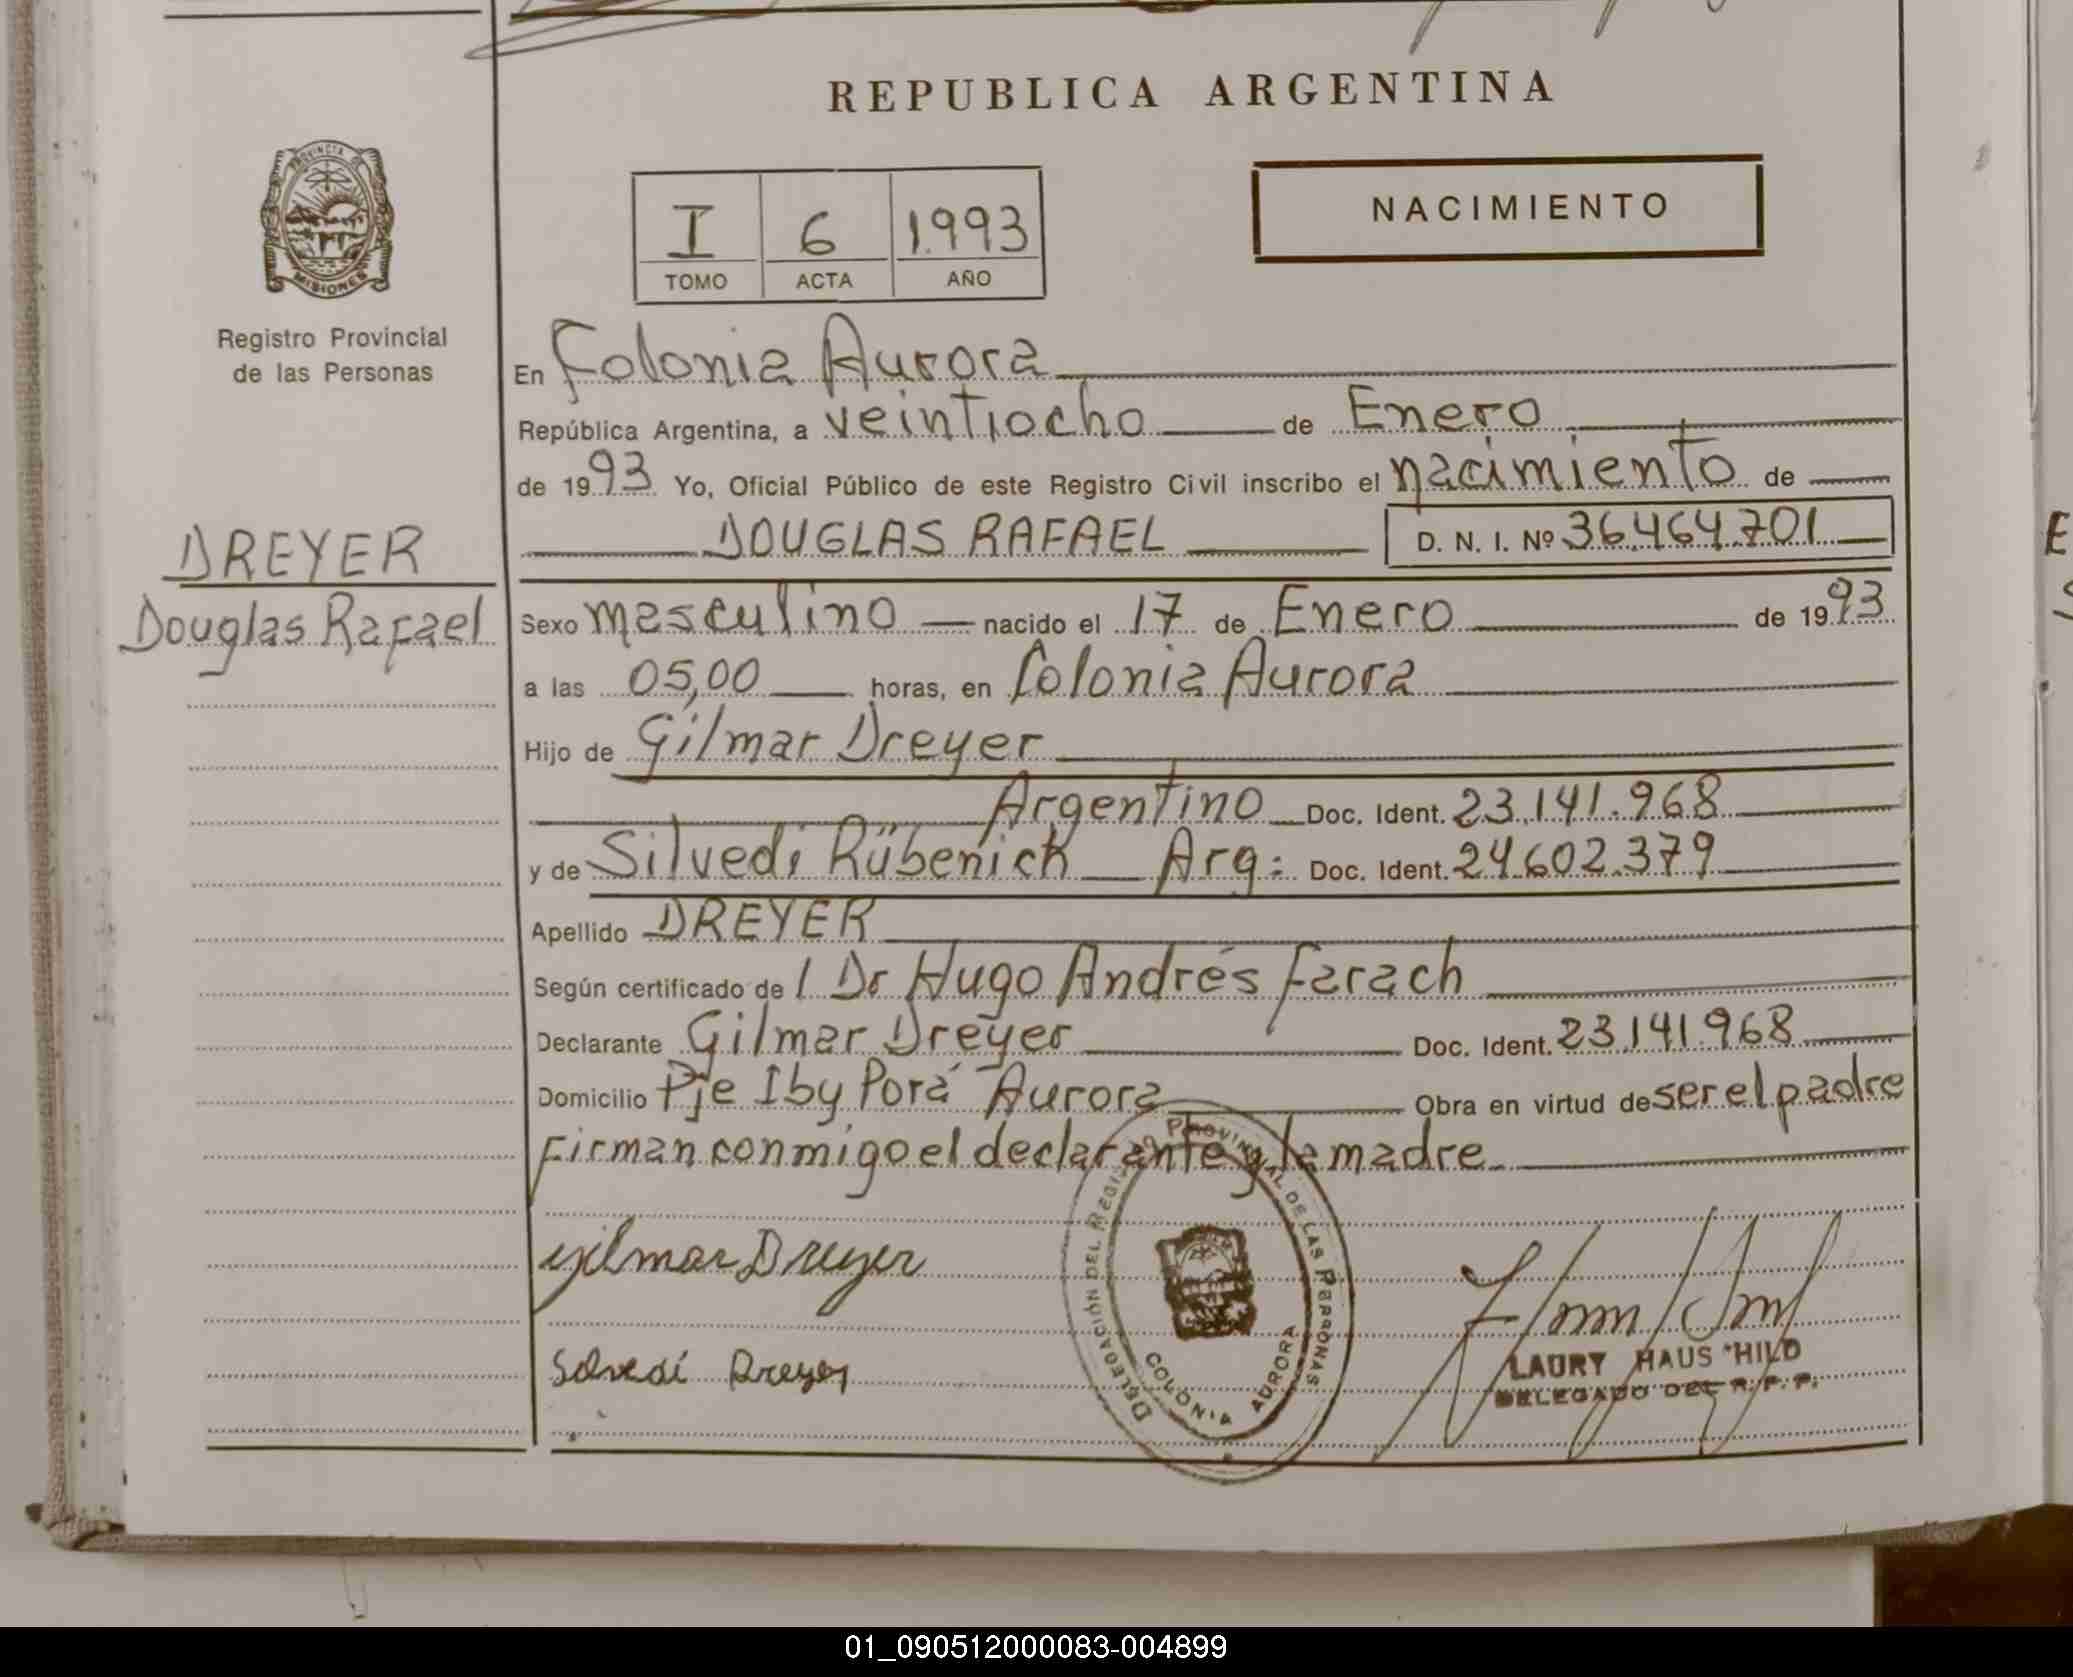 REPUBLICA ARGENTINA
PROVINCIA DE
MISIONES
Registro Provincial
de las Personas
I 6 1.993
TOMO ACTA AÑO
NACIMIENTO
En Colonia Aurora
República Argentina, a veintiocho de Enero
de 1993 Yo, Oficial Público de este Registro Civil inscribo el nacimiento de
DOUGLAS RAFAEL D. N. I. Nº 36.464.701
DREYER
Douglas Rafael
Sexo masculino nacido el 17 de Enero de 1993
a las 05,00 horas, en Colonia Aurora
Hijo de Gilmar Dreyer
Argentino Doc. Ident. 23.141.968
y de Silvedi Rübenich Arg: Doc. Ident. 24.602.379
Apellido DREYER
Según certificado de l Dr Hugo Andrés Farach
Declarante Gilmar Dreyer Doc. Ident. 23.141.968
Domicilio Pje Iby Porá Aurora Obra en virtud de ser el padre
Firman conmigo el declarante y la madre
Gilmar Dreyer
Silvedi Dreyer
DELEGACIÓN DEL REGISTRO PROVINCIAL DE LAS PERSONAS
COLONIA AURORA
LAURY HAUS HILD
DELEGADO DEL R. P. P.
01_090512000083-004899